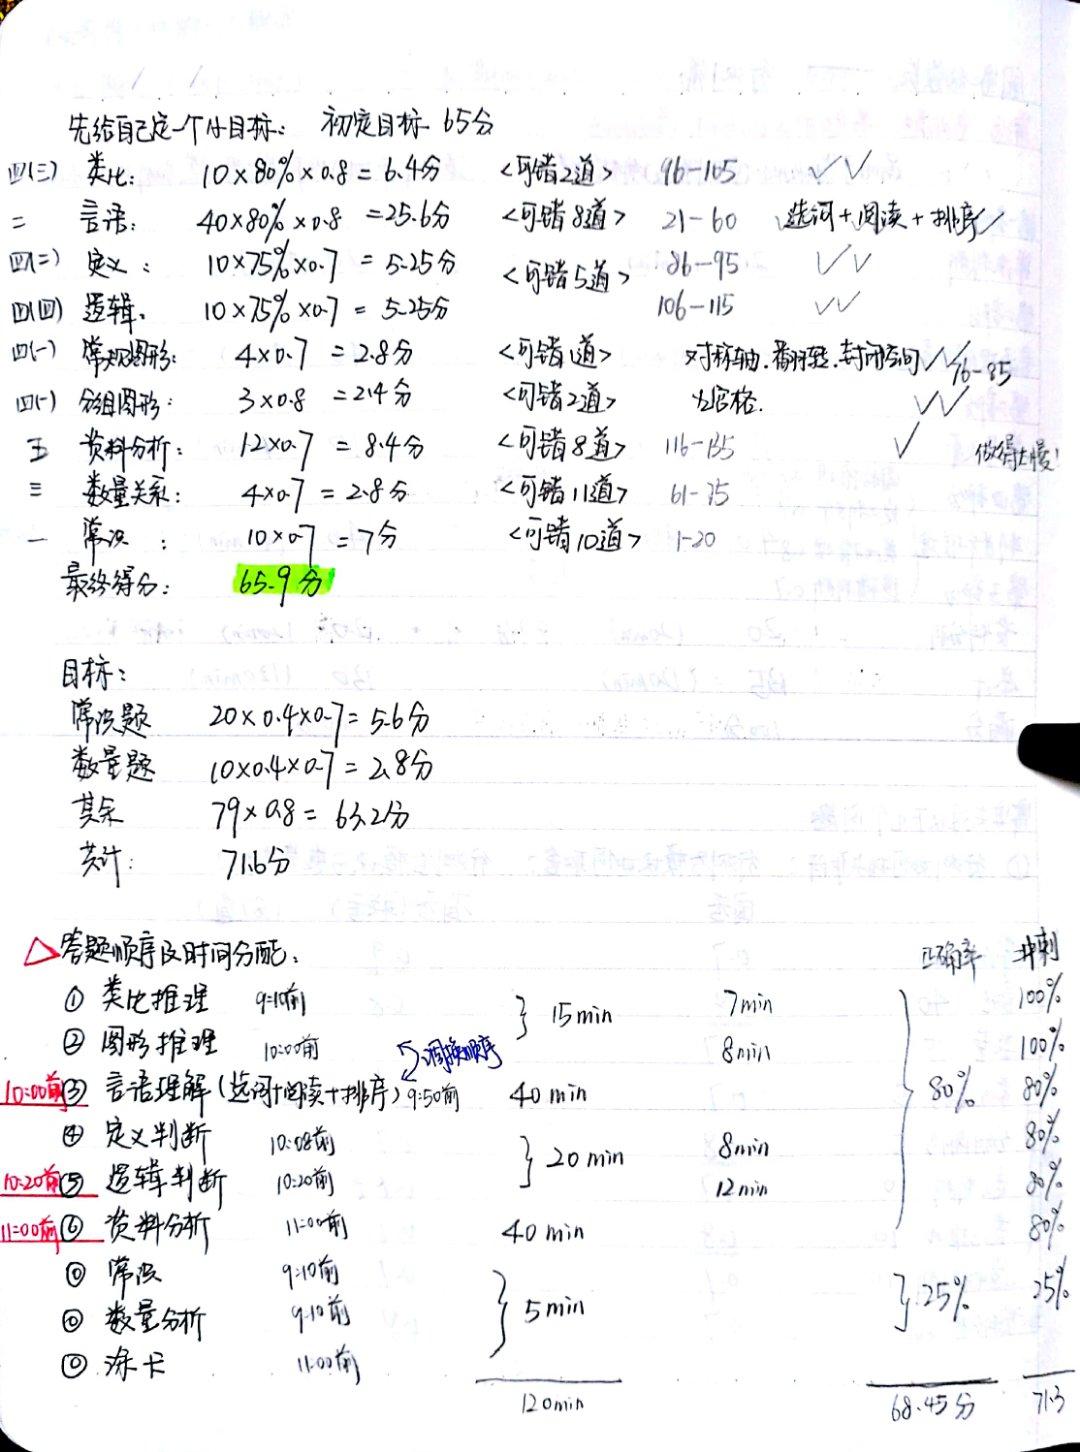 先给自己定一个小目标: 初定目标 65分
四(三) 类比: 10×80%×0.8=6.4分 <可错2道> 96-105 ✓✓
二 言语: 40×80%×0.8=25.6分 <可错8道> 21-60 选词+阅读+排序✓
四(二) 定义: 10×75%×0.7=5.25分 <可错5道> 86-95 ✓✓
四(四) 逻辑: 10×75%×0.7=5.25分 106-115 ✓✓
四(一) 常规图形: 4×0.7=2.8分 <可错1道> 对称轴.翻转.封闭空间 ✓✓ 76-85
四(一) 分组图形: 3×0.8=2.4分 <可错2道> ✓✓
五 资料分析: 12×0.7=8.4分 <可错8道> 116-135 ✓ 做得太慢!
三 数量关系: 4×0.7=2.8分 <可错11道> 61-75
一 常识: 10×0.7=7分 <可错10道> 1-20
最终得分: 65.9分
目标:
常识题 20×0.4×0.7=5.6分
数量题 10×0.4×0.7=2.8分
其余 79×0.8=63.2分
共计: 71.6分
△答题顺序及时间分配: 正确率 冲刺
① 类比推理 9:10前 15min 7min 100%
② 图形推理 10:00前 8min 100%
调换顺序
10:00前 ③ 言语理解(选词+阅读+排序) 9:50前 40min 80% 80%
④ 定义判断 10:08前 20min 8min 80%
10:20前 ⑤ 逻辑判断 10:20前 12min 80%
11:00前 ⑥ 资料分析 11:00前 40min 80%
⓪ 常识 9:10前 5min 25% 25%
⓪ 数量分析 9:10前
⓪ 涂卡 11:00前
120min 68.45分 71.3